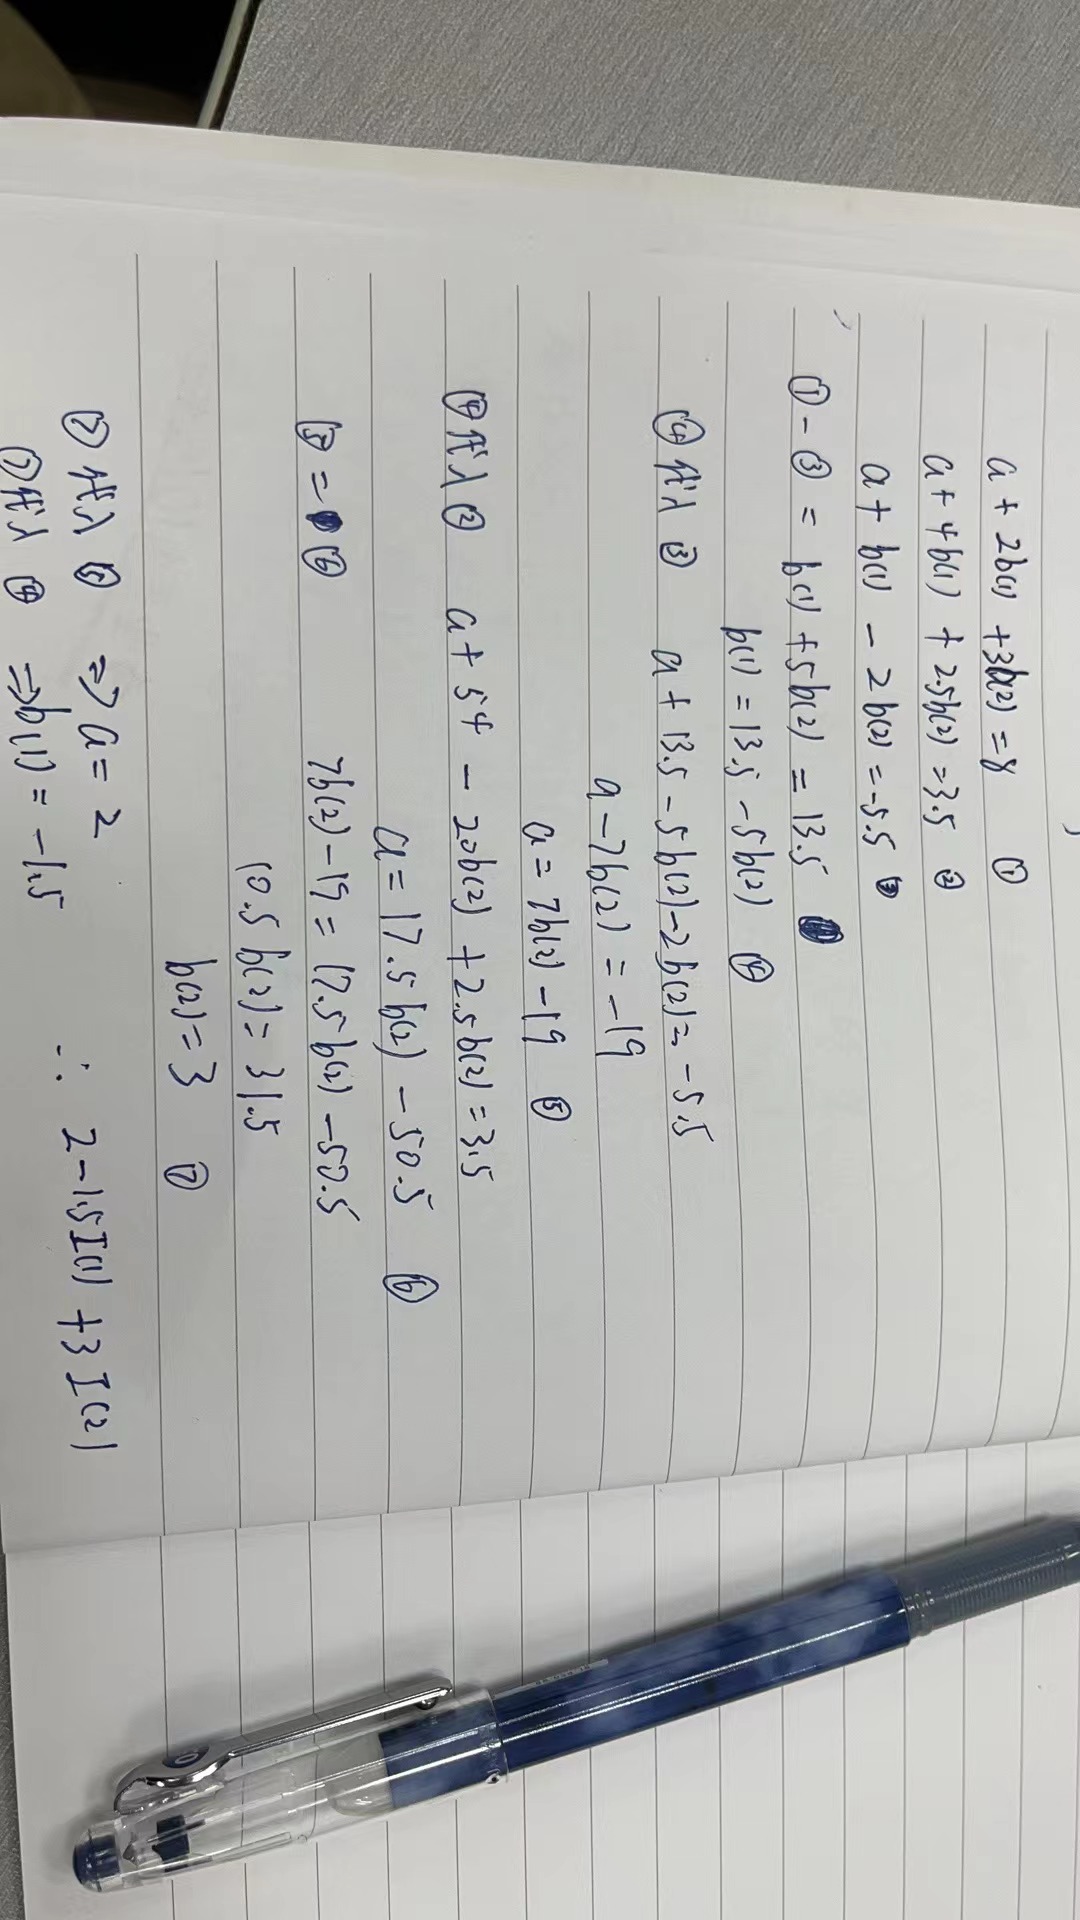 a + 2b(1) + 3b(2) = 8 ①
a + 4b(1) + 2.5b(2) = 3.5 ②
a + b(1) - 2b(2) = -5.5 ③
① - ③ = b(1) + 5b(2) = 13.5
b(1) = 13.5 - 5b(2) ④
④代入③ a + 13.5 - 5b(2) - 2b(2) = -5.5
a - 7b(2) = -19
a = 7b(2) - 19 ⑤
④代入② a + 54 - 20b(2) + 2.5b(2) = 3.5
a = 17.5b(2) - 50.5 ⑥
⑤ = ⑥ 7b(2) - 19 = 17.5b(2) - 50.5
10.5b(2) = 31.5
b(2) = 3 ⑦
⑦代入⑤ => a = 2 ∴ 2 - 1.5I(1) + 3I(2)
⑦代入④ => b(1) = -1.5